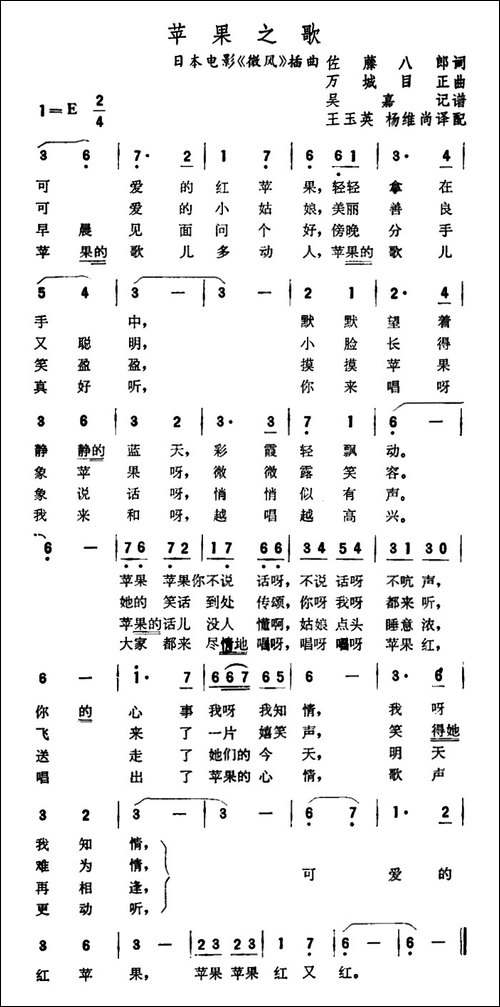 苹果之歌
日本电影《微风》插曲 佐藤八郎词
万城目正曲
1=E 2/4
吴嘉记谱
王玉英 杨维尚译配
3 6 | 7· 2 | 1 7 | 6 6 1 | 3· 4 |
可爱的红苹果,轻轻拿在
可爱的小姑娘,美丽善良
早晨见面问个好,傍晚分手
苹果的歌儿多动人,苹果的歌儿
5 4 | 3 — | 3 — | 2 1 | 2· 4 |
手中,默默望着
又聪明,小脸长得
笑盈盈,摸摸苹果
真好听,你来唱呀
3 6 | 3 2 | 3· 3 | 7 1 | 6 — |
静静的蓝天,彩霞轻飘动。
象苹果呀,微微露笑容。
象说话呀,悄悄似有声。
我来和呀,越唱越高兴。
6 — | 76 72 | 17 66 | 34 54 | 31 30 |
苹果苹果你不说话呀,不说话呀不吭声,
她的笑话到处传颂,你呀我呀都来听,
苹果的话儿没人懂啊,姑娘点头睡意浓,
大家都来尽情地唱呀,唱呀唱呀苹果红,
6 — | 1· 7 | 667 65 | 6 — | 3· 6 |
你的心事我呀我知情,我呀
飞来了一片嬉笑声,笑得她
送走了她们的今天,明天
唱出了苹果的心情,歌声
3 2 | 3 — | 3 — | 6 7 | 1· 2 |
我知情,
难为情,
可爱的
再相逢,
更动听,
3 6 | 3 — | 23 23 | 1 7 | 6 — | 6 — ‖
红苹果,苹果苹果红又红。